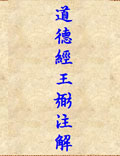 道德經王弼注解